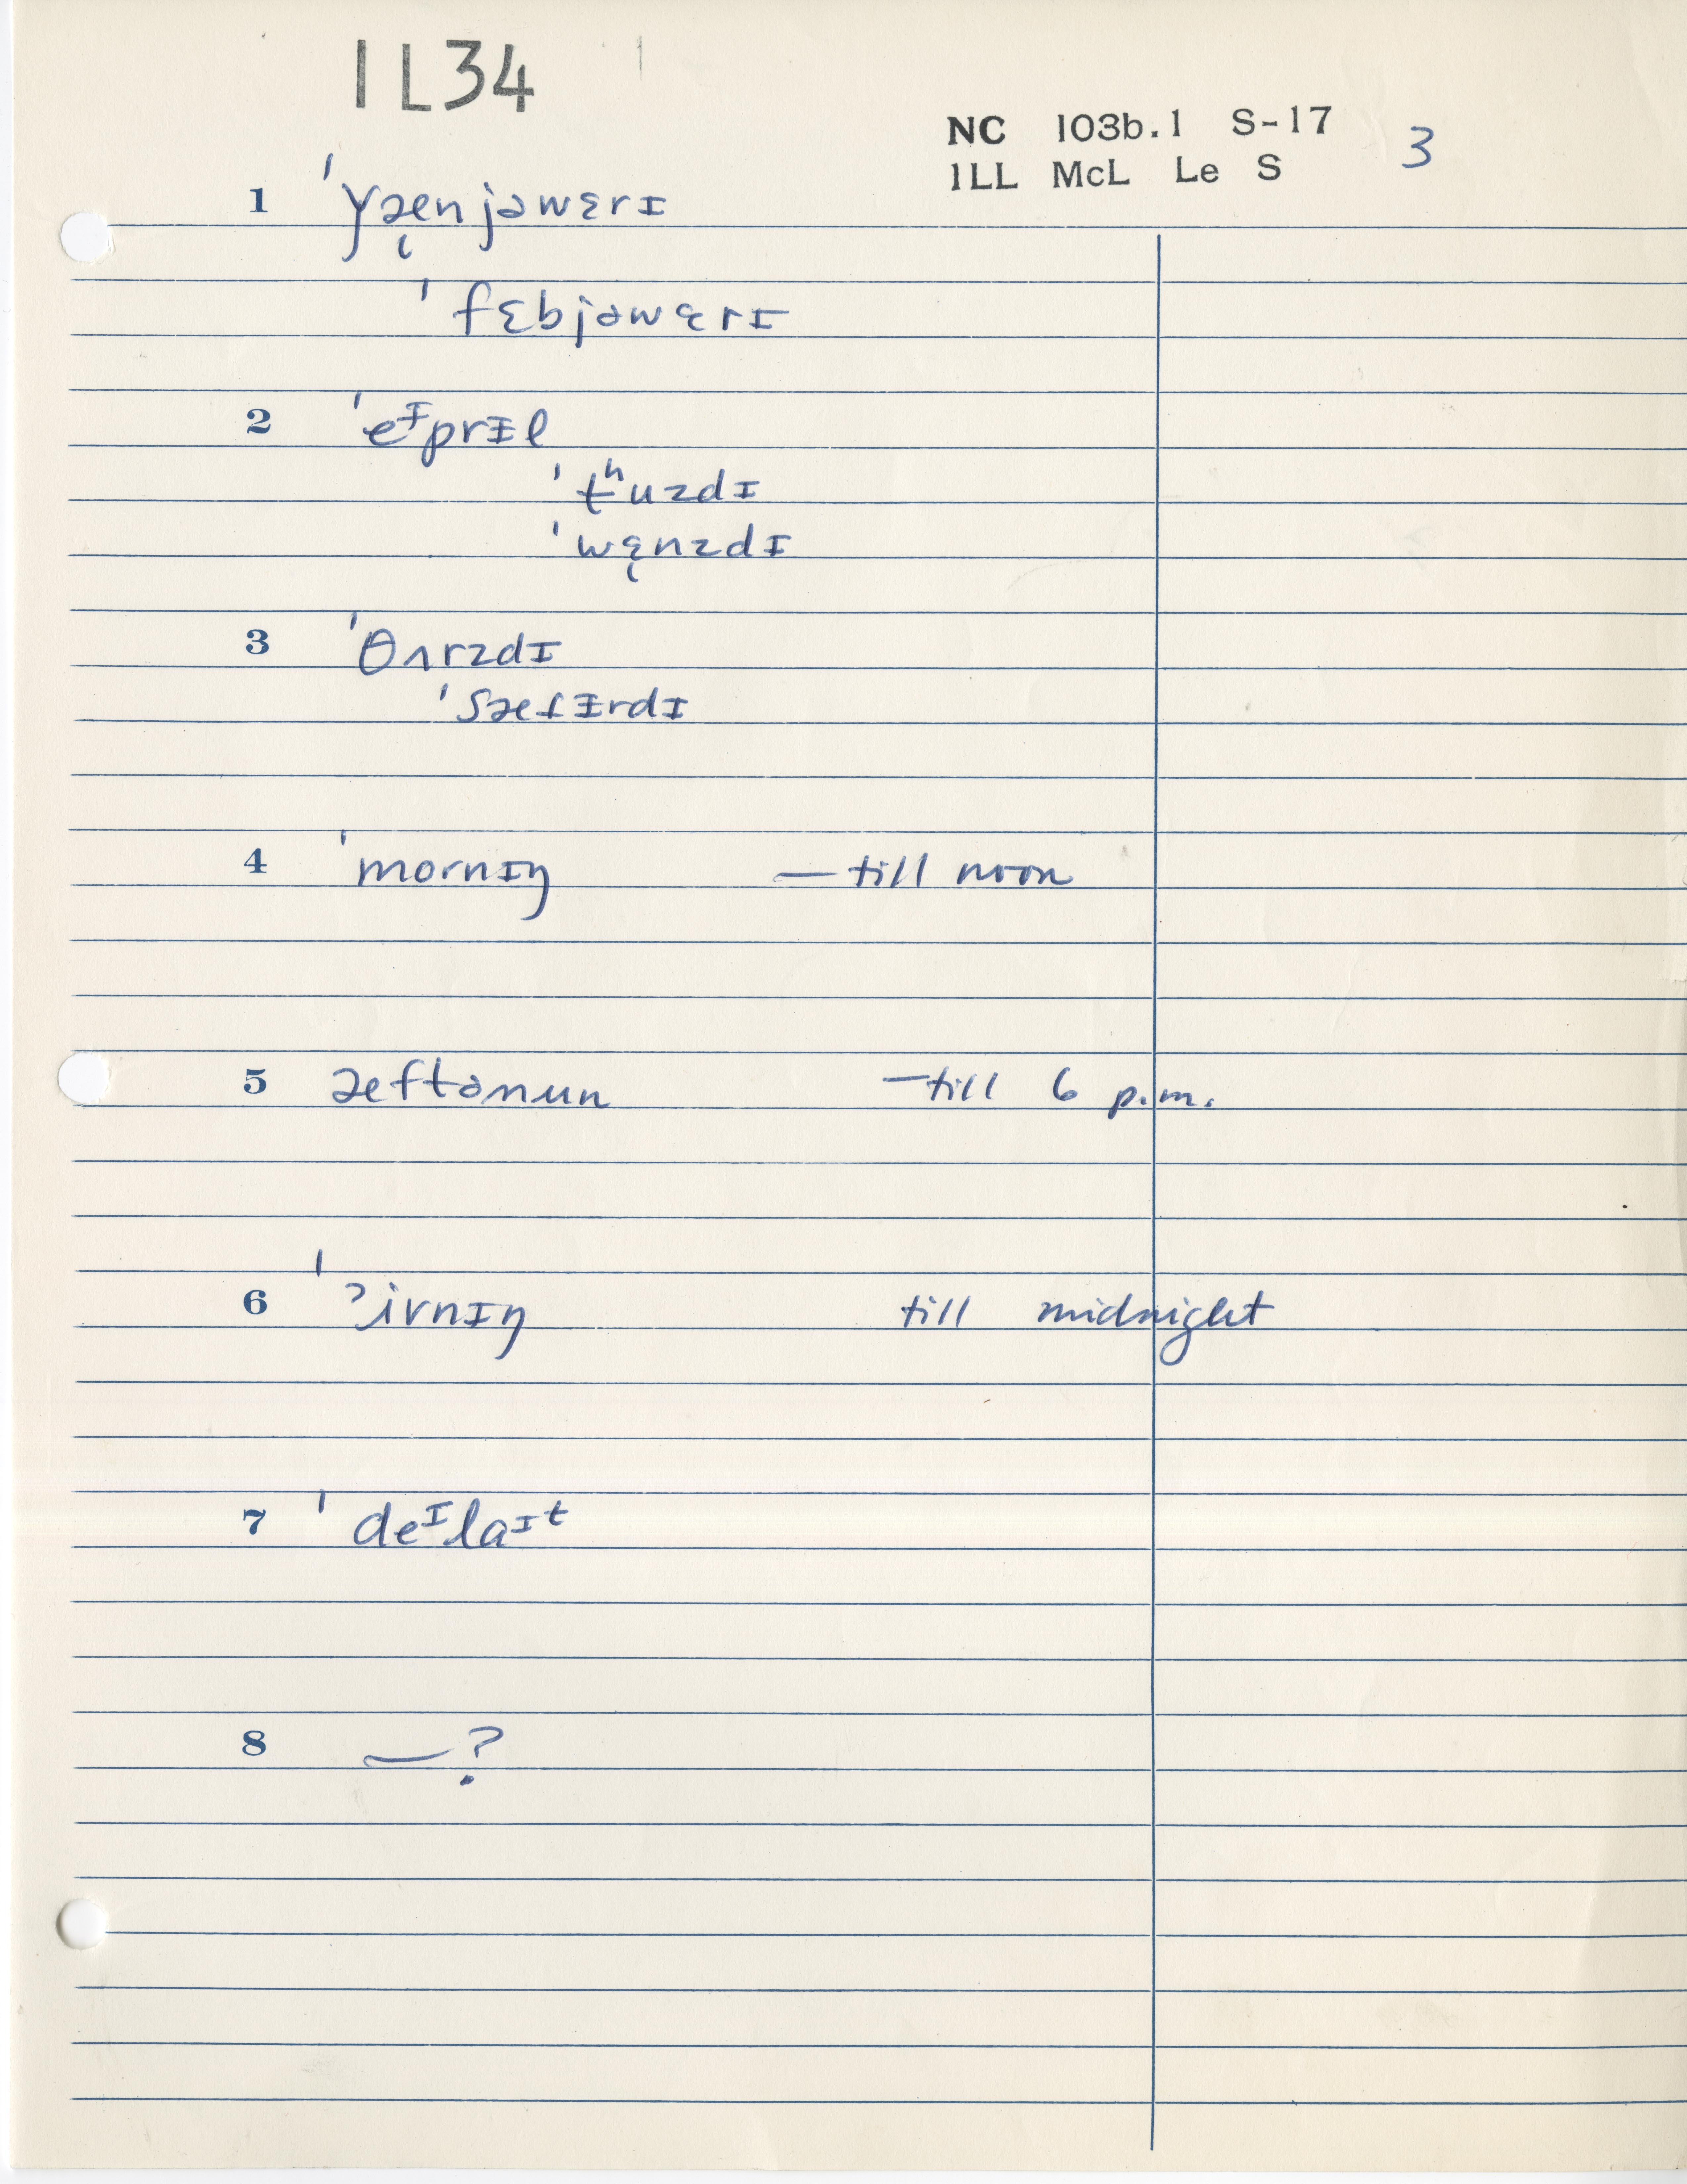 1L34
NC 103b.1 S-17 3
1LL McL Le S
1 ˈɣæ̨njəwɛrɪ
ˈfɛbjəwɛrɪ
2 ˈeᶦprɪl
ˈtʰuzdɪ
ˈwɛ̨nzdɪ
3 ˈθʌrzdɪ
ˈsætɪrdɪ
4 ˈmornɪŋ — till noon
5 æftənun — till 6 p.m.
6 ˈʔivnɪŋ till midnight
7 ˈdeᶦlaɪt
8 — ?